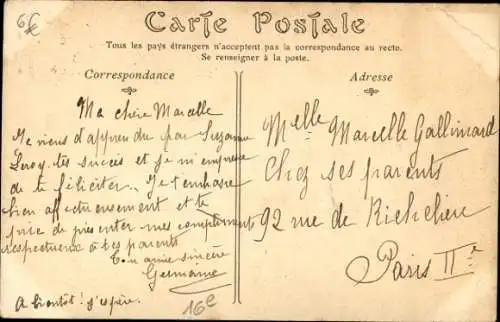 6€
Carte Postale
Tous les pays étrangers n'acceptent pas la correspondance au recto.
Se renseigner à la poste.
Correspondance
Ma chère Marcelle
Je viens d'apprendre par Suzanne
Leroy tes succès et je m'empresse
de te féliciter. Je t'embrasse
bien affectueusement et te
prie de présenter mes compliments
respectueux à tes parents
Ton amie sincère
Germaine
A bientôt! j'espère.
16e
Adresse
Melle Marcelle Gallimard
Chez ses parents
92 rue de Richelieu
Paris IIe